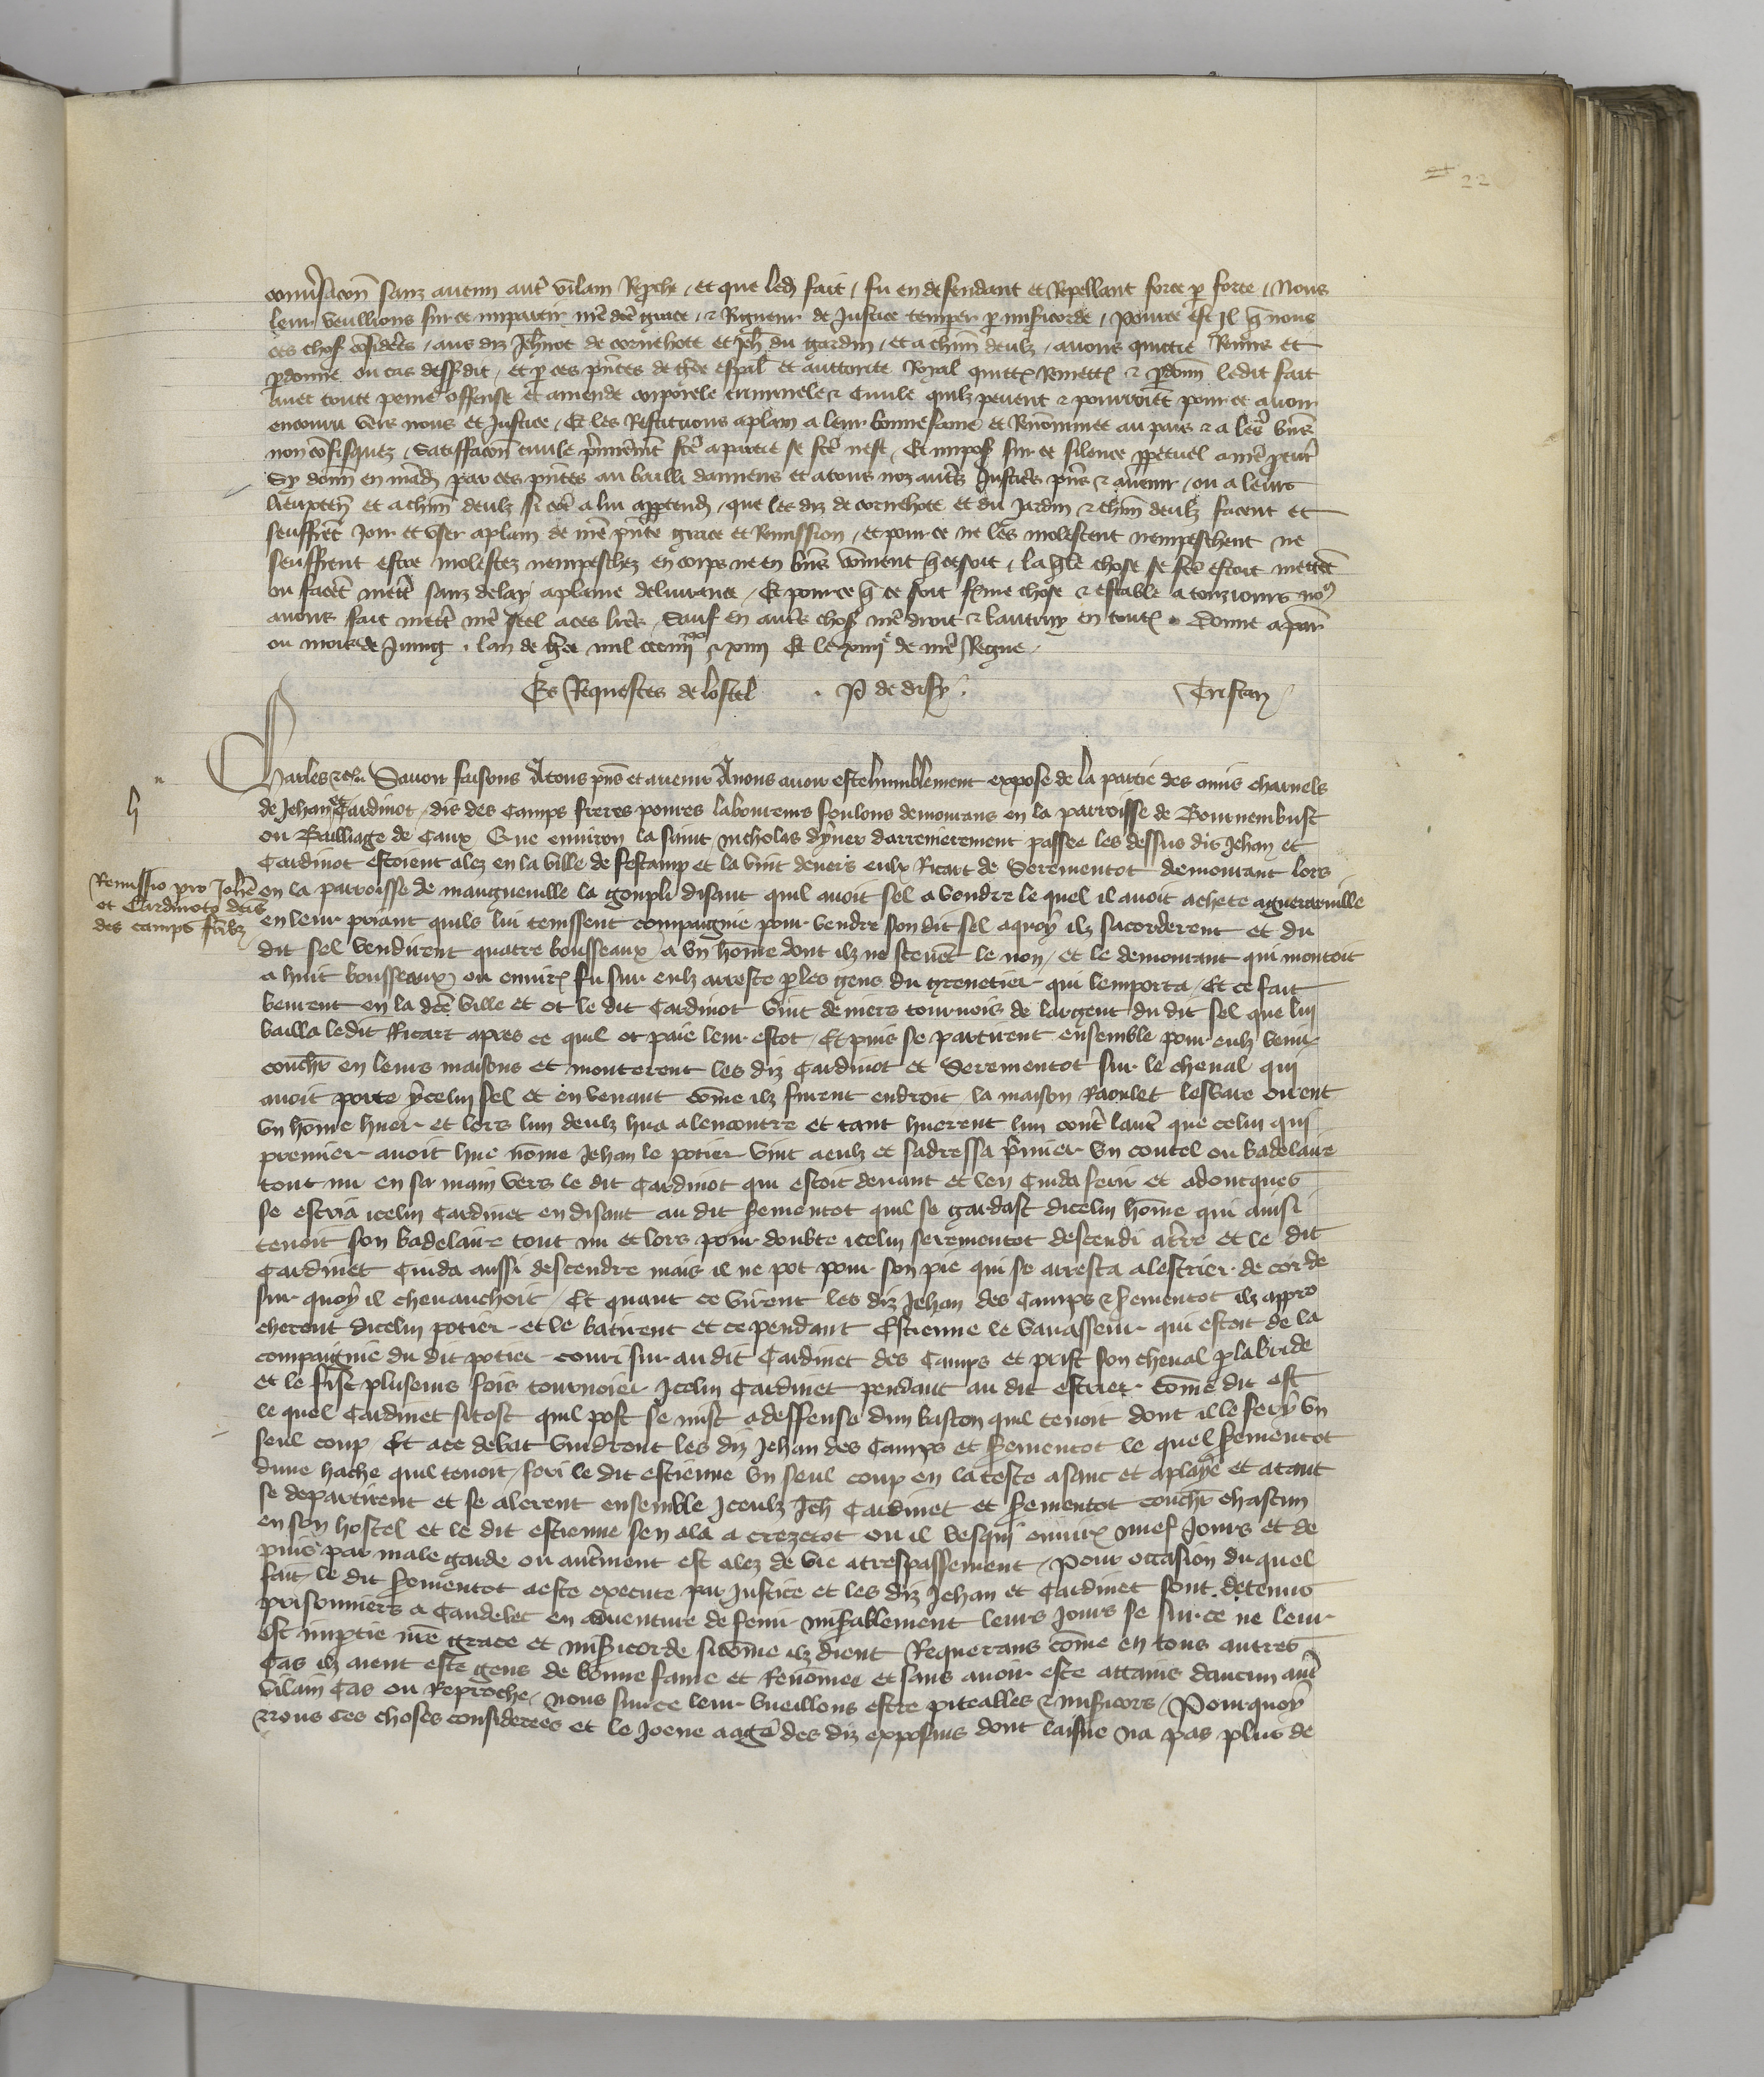 22
conversacion sanz aucun autre vilain reproche, et que led fait, fu en defendant et repellant force par force, Nous
leur veullions sur ce impartir nre dce grace, & rigueur de justice temper par misericorde, Pource est il que nous
ces choses considerees, aus diz Jehinot de cornehote et Jeh du gardin, et a chun deulz, avons quittie Remis et
pardonne ou cas dessusdit, et par ces presentes de grace especial et auttorite Royal quittons Remettons & pardonnons ledit fait
avec toute peine offense et amende corporele criminele & Civile quilz pevent & pourroient pour ce avoir
encouru vers nous et Justice, Et les Restituons aplain a leur bonne fame et Renommee au pais & a leurs biens
non confisquez, Satisfacon civile premierement fce a partie se fce nest, Et imposons sur ce silence perpetuel a nre procureur
Sy donnons en mand par ces presentes au bailli damiens et a tous noz autres Justiciers presens & avenir, ou a leurs
lieuxten et a chun deulz si come a lui appartendra, que les diz de cornehote et du Jardin & chun deulz facent et
seuffrent Joir et user aplain de nre pnte grace et Remission, et pour ce ne les molestent nempeschent ne
seuffrent estre molestez nempeschez en corps ne en biens coment que ce soit, la quele chose se fce estoit mettent
ou facent mettre sanz delay a plaine delivrance, Et pource que ce soit ferme chose & estable a tousiours nous
avons fait mettre nre seel a ces lres, Sauf en autres choses nre droit & lautruy en toutes. Donne a paris
ou mois de Juing, lan de grace mil ccc iiii xx & xiiii Et le xiiii e de nre Regne,
Es Requestes de lostel . P de disy . Tristan
Charles &c Savoir faisons A tous pns et avenir A nous avoir este humblement expose de la partie des amis charnels
de Jehan et Cardinot, dis des Camps freres povres laboureurs foulons demourans en la parroisse de Bournembust
ou Bailliage de Caux Que environ la saint nicholas dyver darrenierement passee les dessus dis Jehan et
Cardinot estoient alez en la ville de fescamp et la vint devers eulx Ricart de Serementot demourant lors
Remissio pro Johe
et Cardinoto dcis
des camps frib
en la parroisse de maugueuille la goupil disant quil avoit sel a vendre le quel il avoit achete aguerarville
en leur priant quils lui tenissent compaignie pour vendre son dit sel a quoy ilz sacorderent et du
dit sel vendirent quatre bousseaux a un home dont ilz ne scevent le non, et le demourant qui montoit
a huit bousseaux ou environ fu sur eulz arreste par les gens du grenetier qui lemporta, Et ce fait
beurent en la dce ville et ot le dit Cardinot vint deniers tournois de largent du dit sel que lui
bailla ledit Ricart apres ce quil ot paie leur escot, Et puis se partirent ensemble pour eulz venir
couchier en leurs maisons et monterent les diz Cardinot et Serementot sur le cheval qui
avoit porte ycelui sel et en venant come ilz furent endroit la maison Raoulet lesvare oirent
un home huer et lors lun deulz hua a lencontre et tant huerent lun contre lautre que celui qui
premier avoit hue nome Jehan le potier vint a eulz et sadressa premier un coutel ou badelaire
tout nu en sa main vers le dit Cardinot qui estoit devant et len Cuida ferir et adoncques
se escria icelui Cardinet en disant au dit Serementot quil se gardast dicelui home qui ainsi
tenoit son badelaire tout nu et lors pour doubte icelui serementot descendi a terre et le dit
Cardinet Cuida aussi descendre mais il ne pot pour son pie qui se arresta a lestrier de corde
sur quoy il chevauchoit, Et quant ce virent les diz Jehan des Camps & Serementot ilz appro
cherent dicelui potier et le batirent et ce pendant Estienne le vavasseur qui estoit de la
compaignie du dit potier couri sur au dit Cardinet des Camps et prist son cheval par la bride
et le fist plusieurs fois tournoier Icelui Cardinet pendant au dit estrier come dit est
le quel Cardinet si tost quil post se mist a deffense dun baston quil tenoit dont il le fery un
seul coup, Et a ce debat vindrent les diz Jehan des Camps et Serementot le quel Serementot
dune hache quil tenoit, feri le dit estienne un seul coup en la teste a sanc et a playe et atant
se departirent et se alerent ensemble Iceulz Jeh Cardinet et Serementot couchier chascun
en son hostel et le dit estienne sen ala a crezetot ou il vesqui environ neuf Jours et de
puis par male garde ou autrement est alez de vie a trespassement, Pour occasion du quel
fait le dit Serementot a este execute par Justice et les diz Jehan et Cardinet sont detenus
prisonniers a Caudebec en adventure de fenir miserablement leurs Jours se sur ce ne leur
est impartie nre grace et misericorde si come ilz dient Requerans come en tous autres
Cas ilz aient este gens de bonne fame et Renomee et sans avoir este attains daucun autre
vilain Cas ou Reproche, nous sur ce leur vueillons estre piteables & misericors, Pourquoy
Nous ces choses considerees et le Joene aage des diz exposans dont laisne na pas plus de